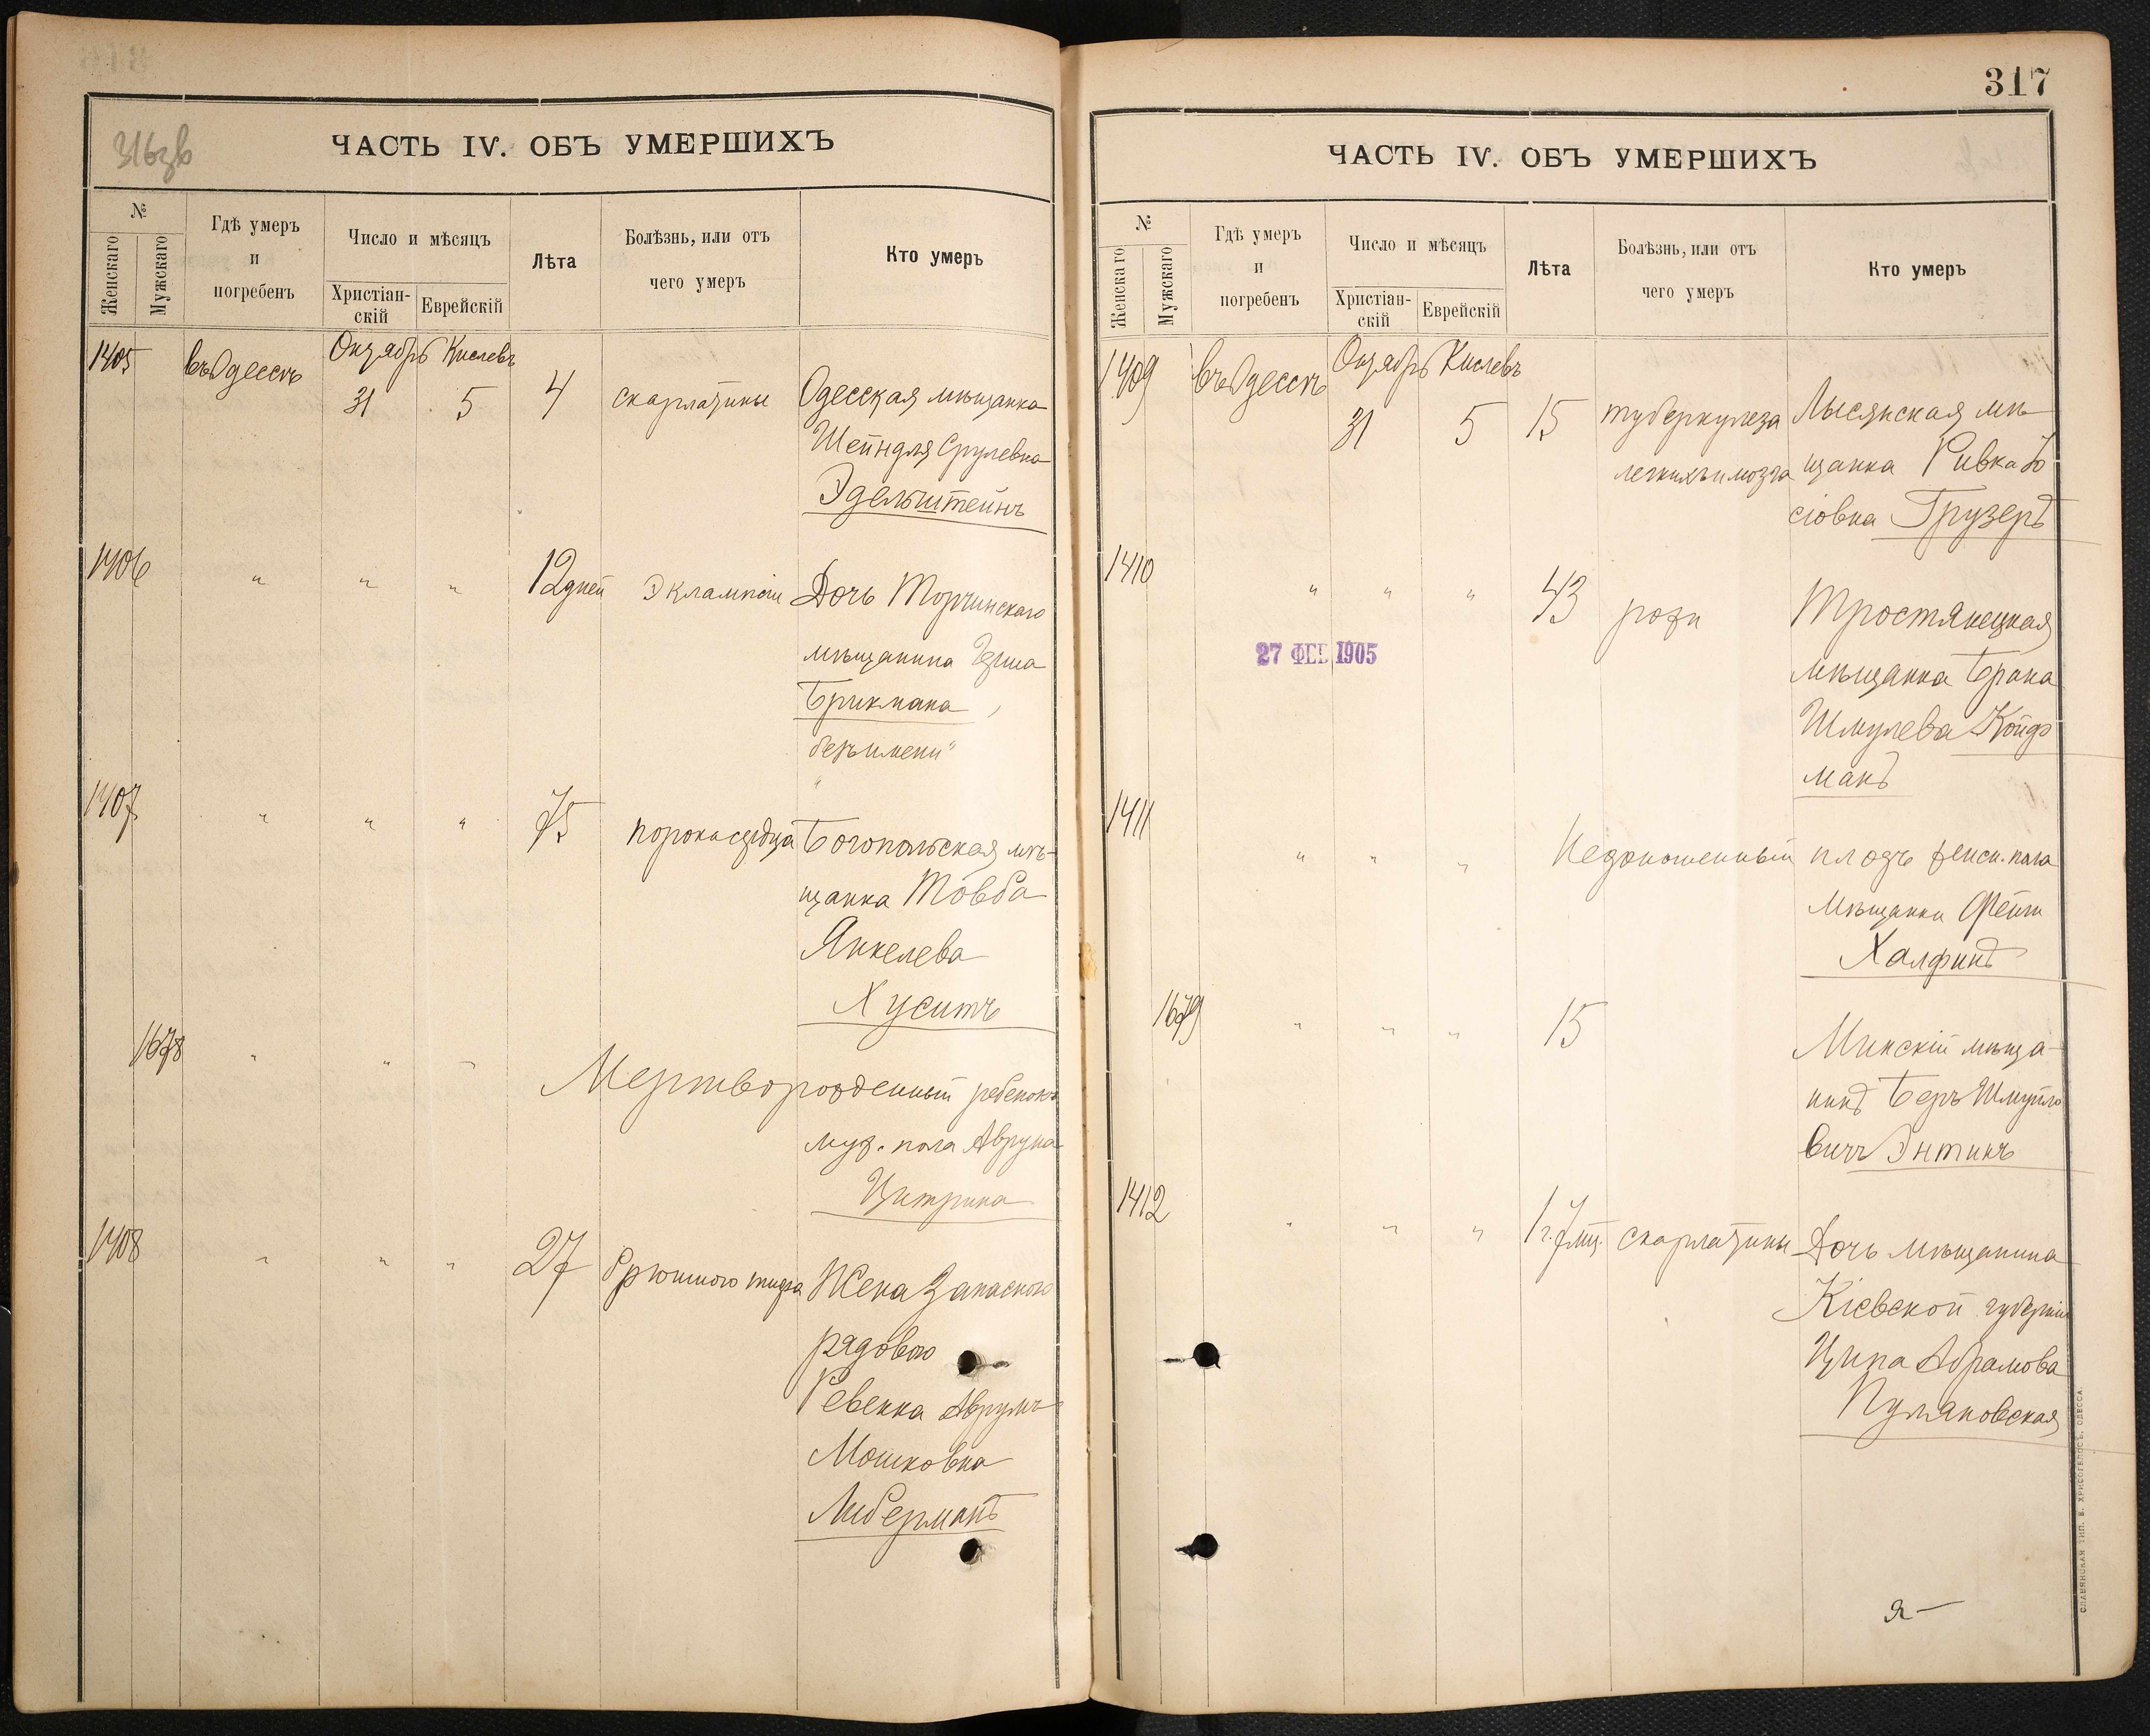 316 зв
ЧАСТЬ IV. ОБЪ УМЕРШИХЪ
№
Женскаго
Мужскаго
Гдѣ умеръ
и
погребенъ
Число и мѣсяцъ
Христіан-
скій
Еврейскій
Лѣта
Болѣзнь, или отъ
чего умеръ
Кто умеръ
1405 въ Одессѣ Октябрь Кислевъ
31 5 4 скарлатины Одесская мѣщанка
Шейндля Срулевна
Эдельштейнъ
1406 " " " 12 дней Эклампсіи Дочь Торчинскаго
мѣщанина
Брикмана,
безъ имени"
1407 " " " 75 порока сердца Богопольская мѣ-
щанка Товба
Янкелева
Хуситъ
1678 " " " Мертворожденный ребенокъ
муж. пола Авруна
Цитрина
1408 " " " 27 брюшного тифа Жена запасного
рядового
Ревекка Аврумъ
Мошковна
Либерманъ
317
ЧАСТЬ IV. ОБЪ УМЕРШИХЪ
№
Женскаго
Мужскаго
Гдѣ умеръ
и
погребенъ
Число и мѣсяцъ
Христіан-
скій
Еврейскій
Лѣта
Болѣзнь, или отъ
чего умеръ
Кто умеръ
1409 въ Одессѣ Октябрь Кислевъ
31 5 15 туберкулеза Лысянская мѣ
легкихъ и мозга щанка Ривка Іо
сіовна Грузеръ
1410 " " " 43 рожи Тростянецкая
27 ФЕВ 1905
мѣщанка Брана
Шмулева Койф
манъ
1411 " " " Недоношенный плодъ женск. пола
мѣщанки Фейги
Халфинъ
1679 " " " 15 Минскій мѣща-
нинъ Беръ Шмуйло
вичъ Энтинъ
1412 " " " 1 г. 7 мц. скарлатины Дочь мѣщанина
Кіевской губерніи
Ципа Абрамова
Пуляновская
СЛАВЯНСКАЯ ТИП. Е. ХРИСОГЕЛОСЪ, ОДЕССА.